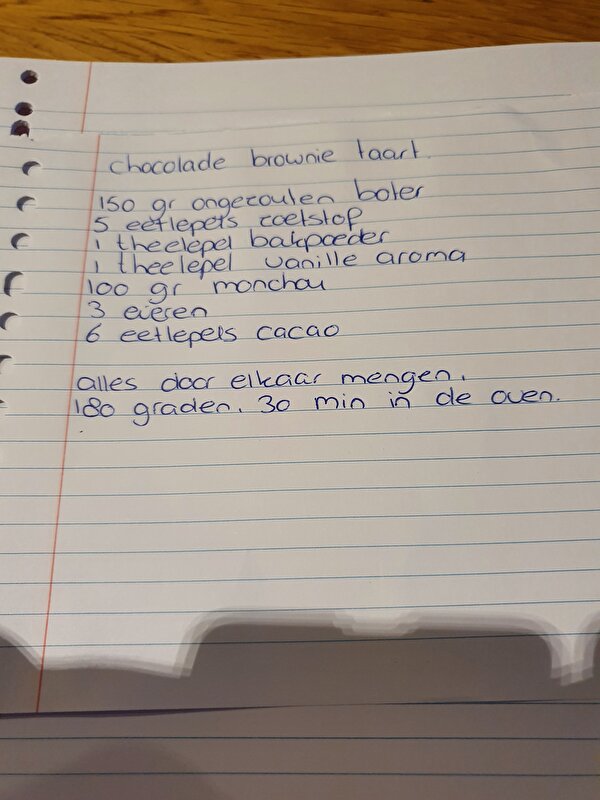 chocolade brownie taart.
150 gr ongezouten boter
5 eetlepels zoetstof
1 theelepel bakpoeder
1 theelepel vanille aroma
100 gr monchou
3 eieren
6 eetlepels cacao
alles door elkaar mengen.
180 graden. 30 min in de oven.